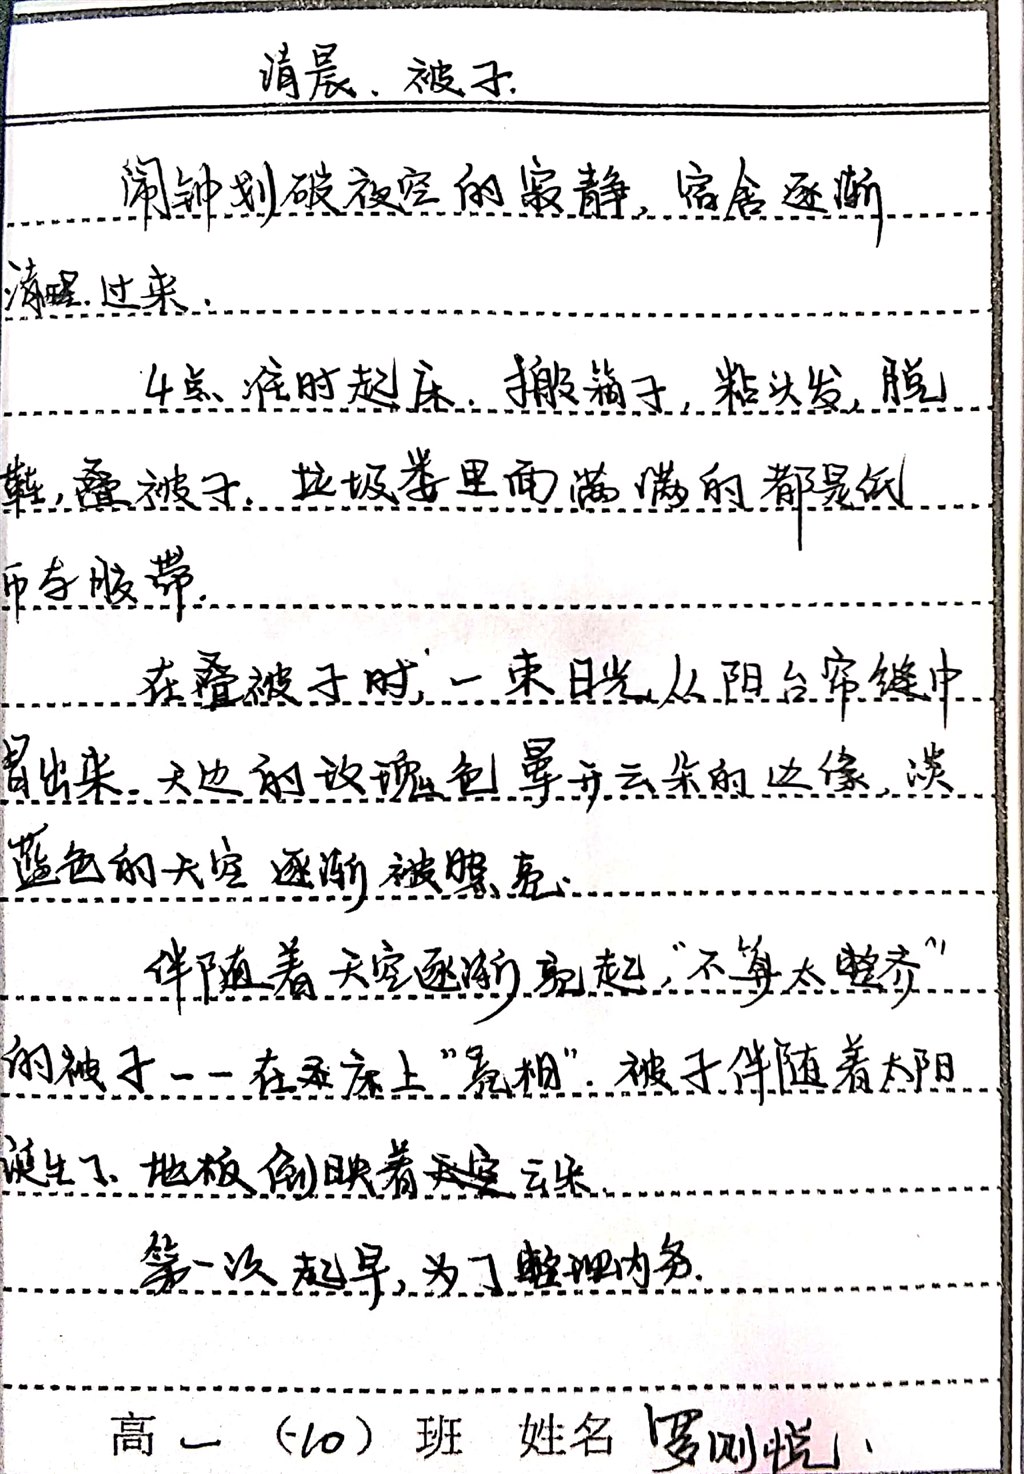 清晨.被子.
闹钟划破夜空的寂静,宿舍逐渐
清醒过来.
4点准时起床.搬箱子,粘头发,脱
鞋,叠被子.垃圾娄里面满满的都是纸
币与胶带.
在叠被子时,一束日光从阳台帘缝中
冒出来.天边的玫瑰色晕开云朵的边缘,淡
蓝色的天空逐渐被照亮.
伴随着天空逐渐亮起,“不算太整齐”
的被子——在床上“亮相”.被子伴随着太阳
诞生了.地板倒映着天空云朵.
第一次起早,为了整理内务.
高一(10)班 姓名 罗悦